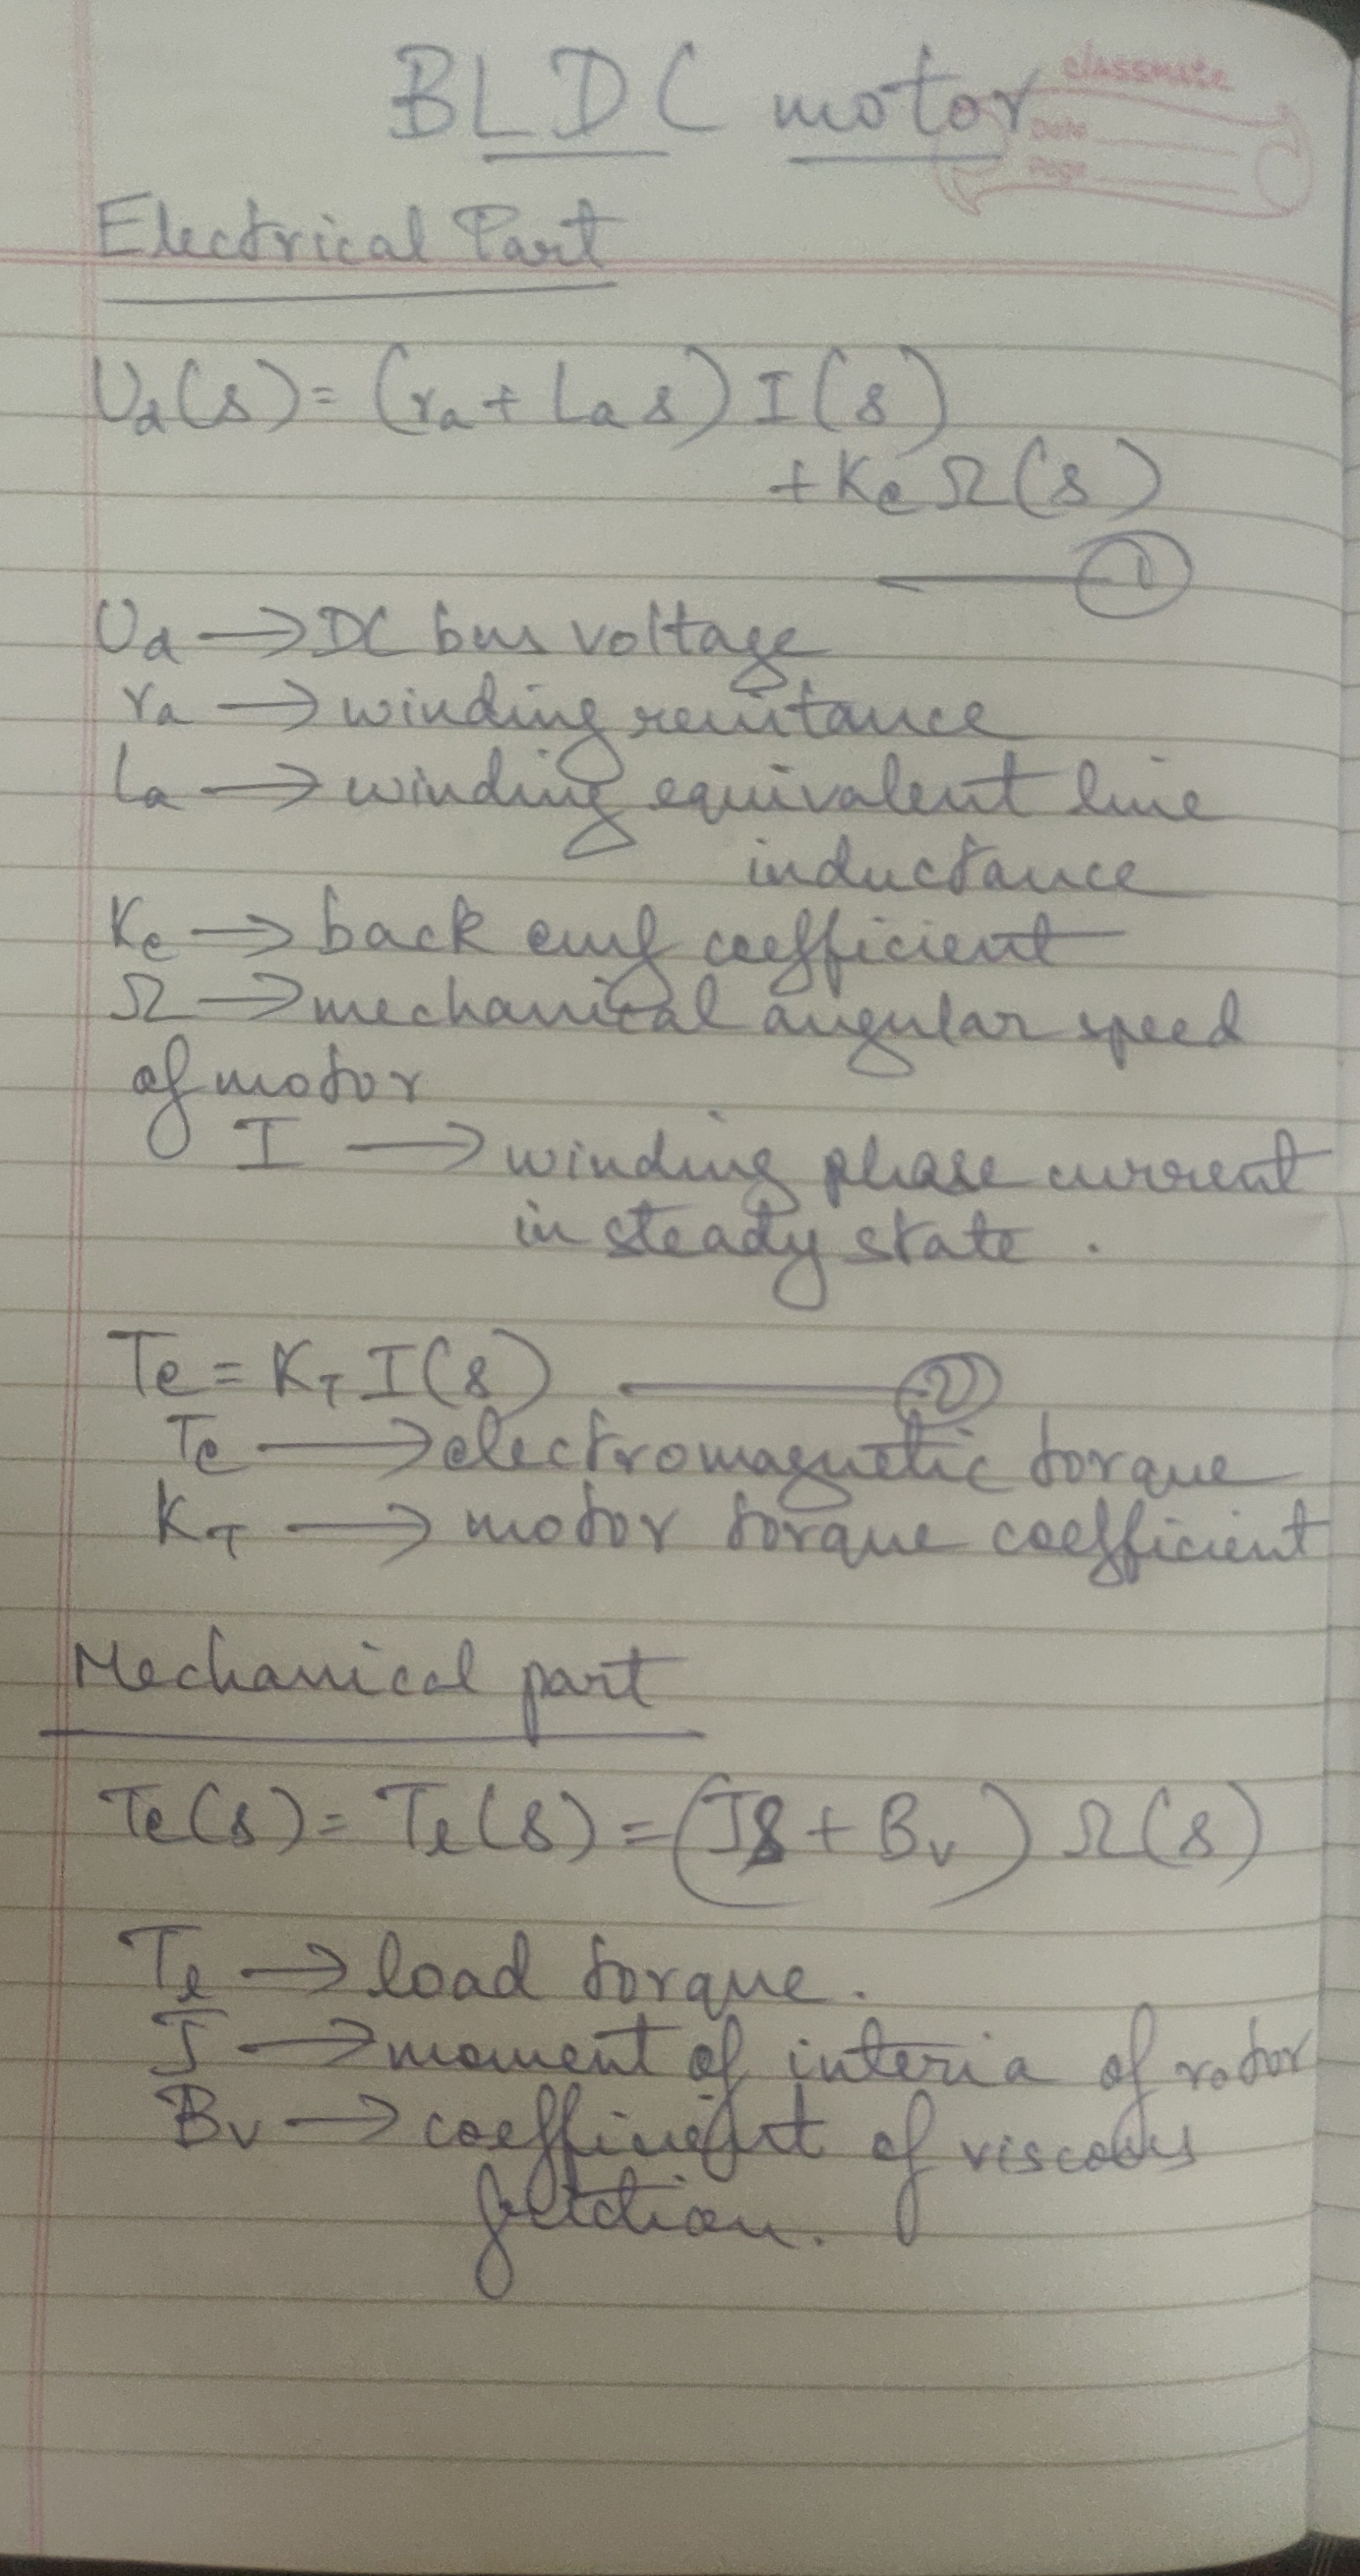 BLDC motor
classmate
Date
Page
Electrical Part
U_d(s) = (r_a + L_a s) I(s)
+ K_e Ω(s)
①
U_d → DC bus voltage
r_a → winding resistance
L_a → winding equivalent line
inductance
K_e → back emf coefficient
Ω → mechanical angular speed
of motor
I → winding phase current
in steady state .
Te = K_T I(s) ②
Te → electromagnetic torque
K_T → motor torque coefficient
Mechanical part
Te(s) = T_l(s) = (Js + B_v) Ω(s)
T_l → load torque.
J → moment of interia of rotor
B_v → coefficient of viscous
friction.